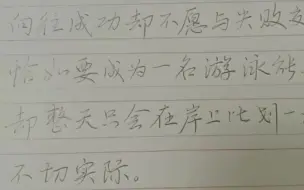 向往成功却不愿与失败
恰如要成为一名游泳
却整天只会在岸上比划一
不切实际。